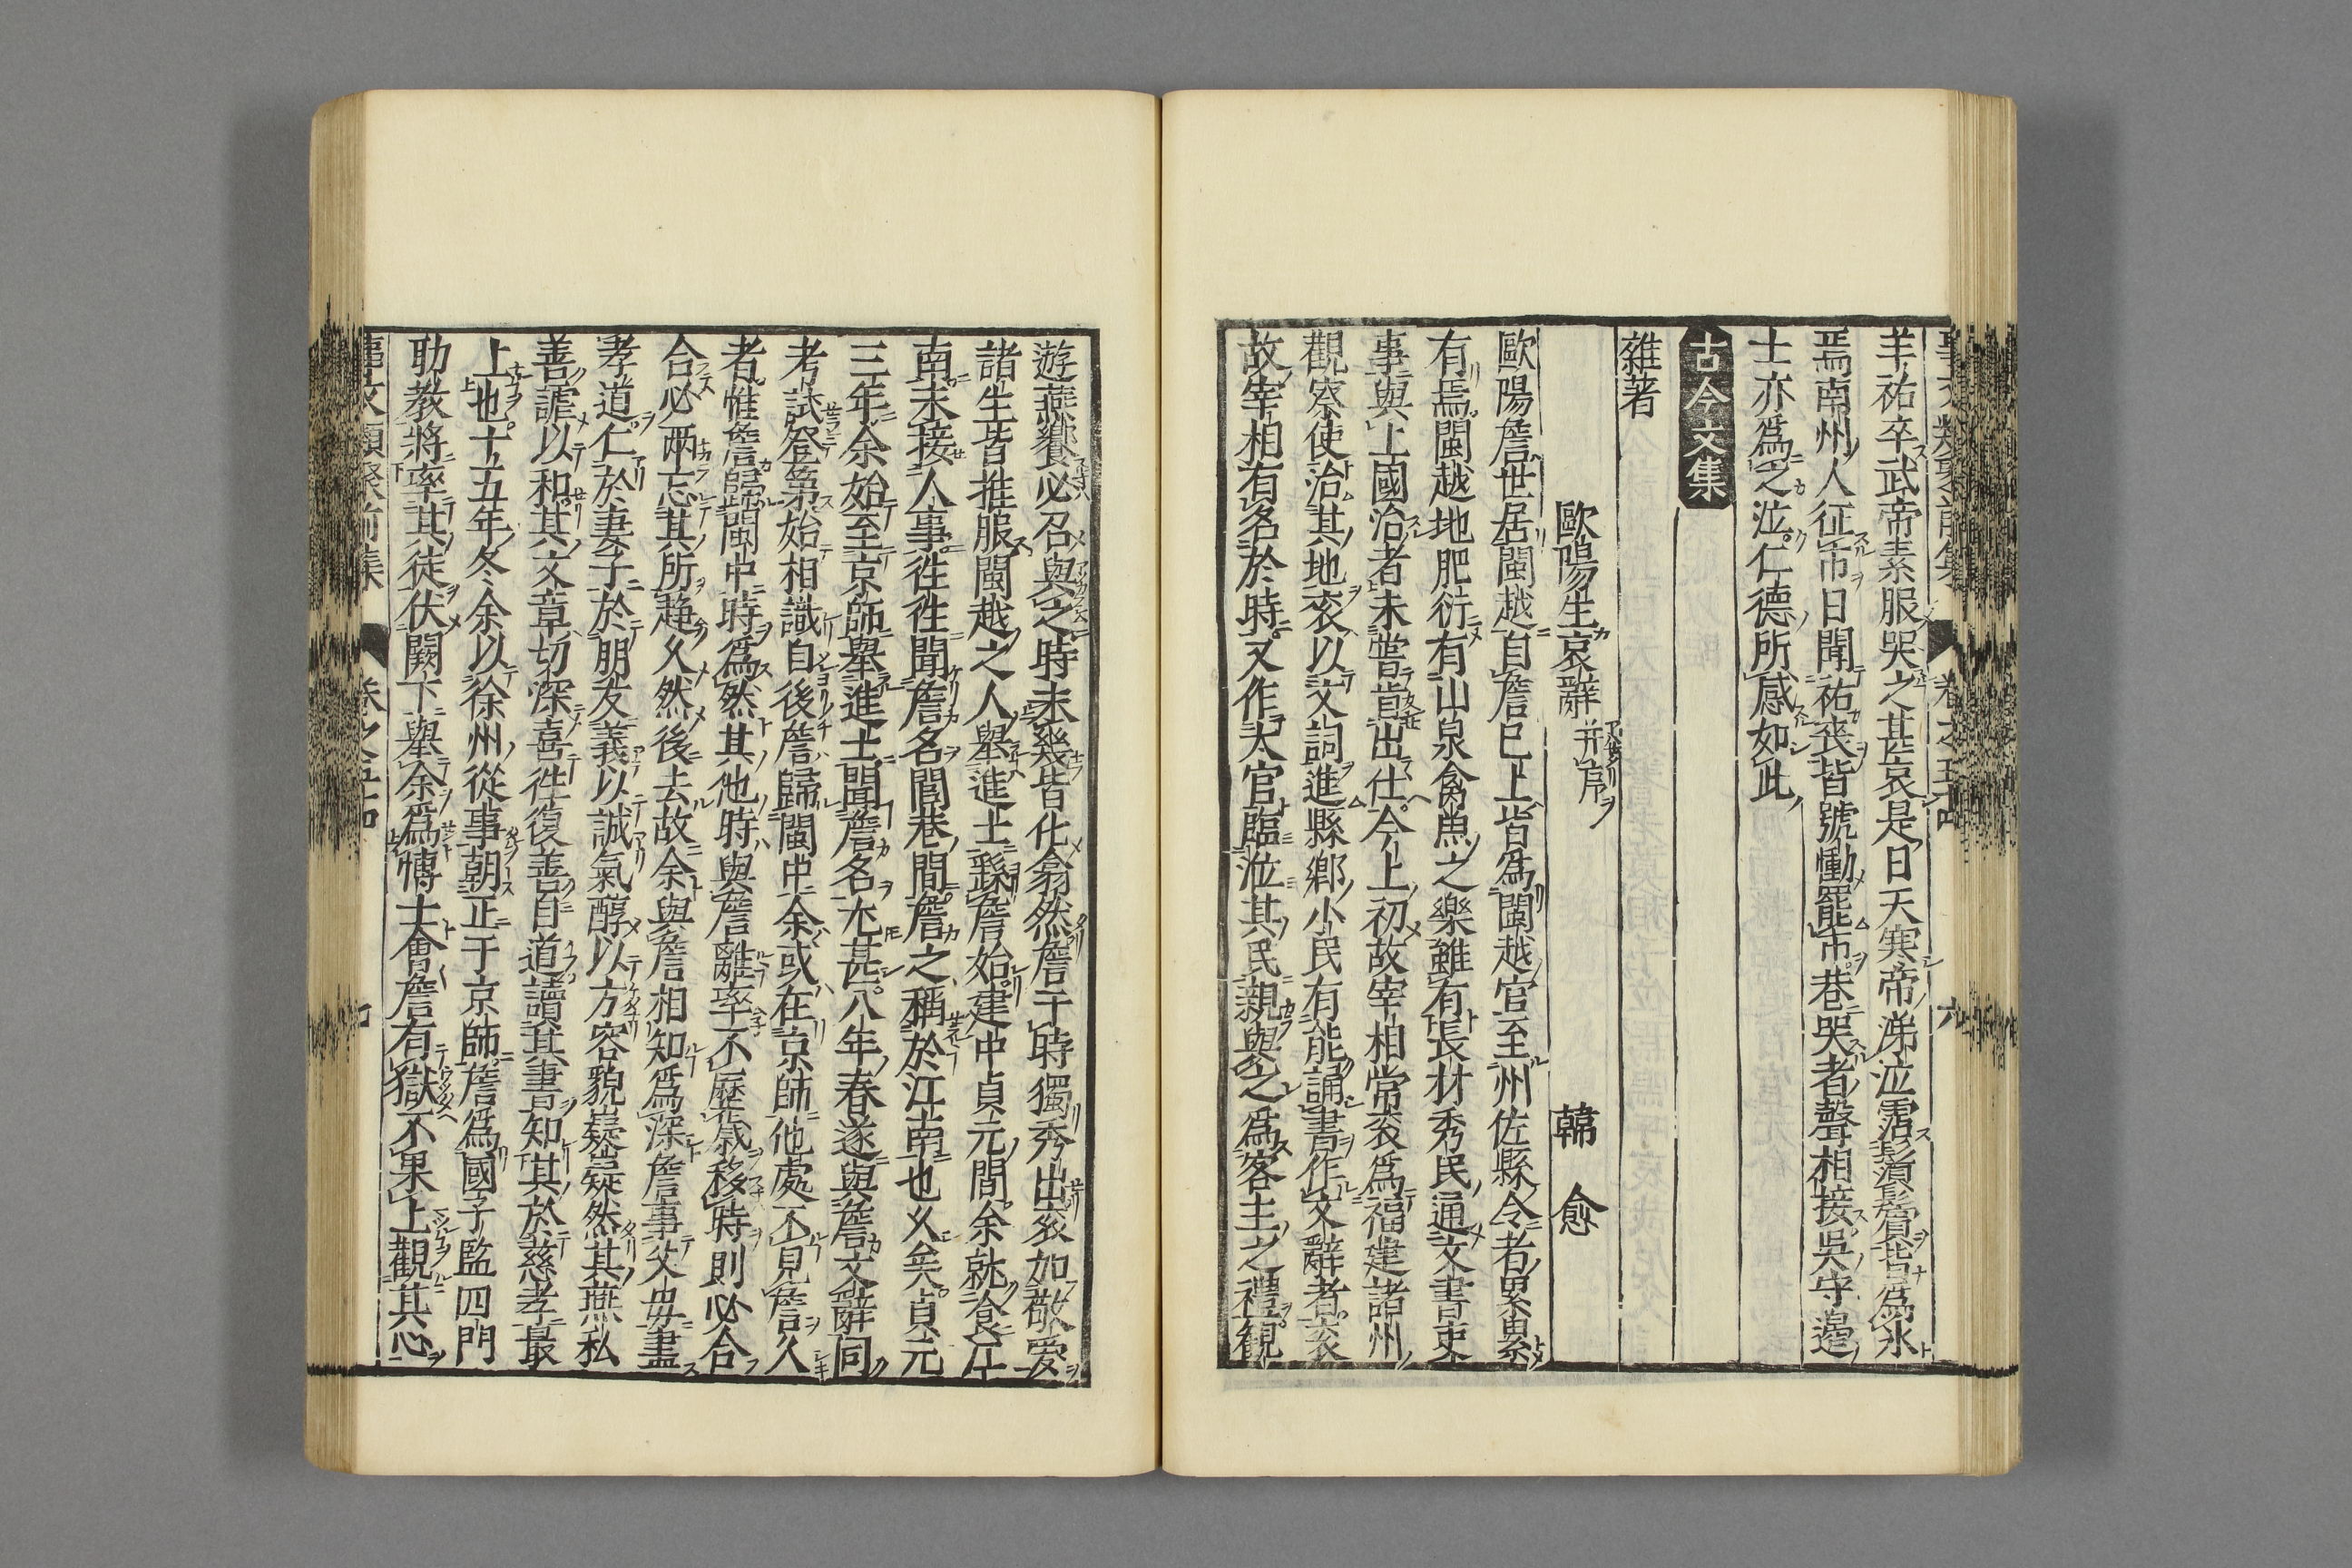 羊祜卒武帝素服哭之甚哀是日天寒帝涕泣霑鬚鬢皆為氷
焉南州人征市日聞祜喪皆號慟罷市巷哭者聲相接吳守邊
士亦爲之泣仁德所感如此
古今文集
雜著
歐陽生哀辭并序 韓愈
歐陽詹世居閩越自詹已上皆爲閩越官至州佐縣令者累累
有焉閩越地肥衍有山泉禽魚之樂雖有長材秀民通文書吏
事與上國治者未嘗肯出仕今上初故宰相常袞爲福建諸州
觀察使治其地袞以文詞進縣鄉小民有能誦書作文辭者袞
故宰相有名於時又作大官臨涖其民親與之爲客主之禮觀
遊燕饗必召與之時未幾皆化翕然詹于時獨秀出袞如敬愛
諸生皆推服閩越之人舉進士繇詹始建中貞元間余就食江
南未接人事徃徃聞詹名閭巷間詹之稱於江南也乆矣貞元
三年余始至京師舉進士聞詹名尤甚八年春遂與詹文辭同
考試登第始相識自後詹歸閩中余或在京師他處不見詹久
者惟詹歸閩中時爲然其他時與詹離率不歷歲移時則必合
合必兩忘其所趨乆然後去故余與詹相知爲深詹事父母盡
孝道仁於妻子於朋友義以誠氣醇以方容貌嶷嶷然其燕私
善謔以和其文章切深喜徃復善自道讀其書知其於慈孝最
上也十五年冬余以徐州從事朝正于京師詹爲國子監四門
助教將率其徒伏闕下舉余爲愽士會詹有獄不果上觀其心